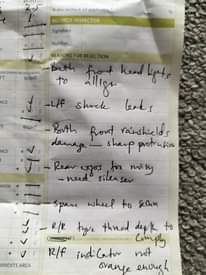 VEHICLE INSPECTOR
Signature
REASONS FOR REJECTION
Both front head lights
to allign
L/F shock leaks
Both front mindshields
damage sharp protrusion
Rear exos too noisy
- need silenser
spare wheel to secure
R/R tyre thread depth to
comply
R/F indicator not
orange enough